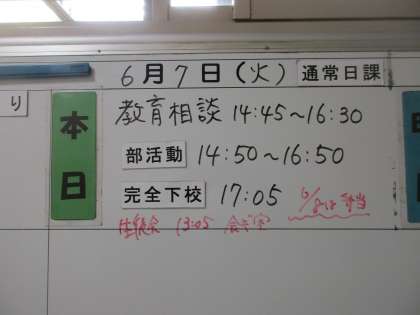 6月7日(火) 通常日課
り
本日
教育相談 14:45〜16:30
部活動 14:50〜16:50
完全下校 17:05
6/8は弁当
生徒会 13:05 会議室